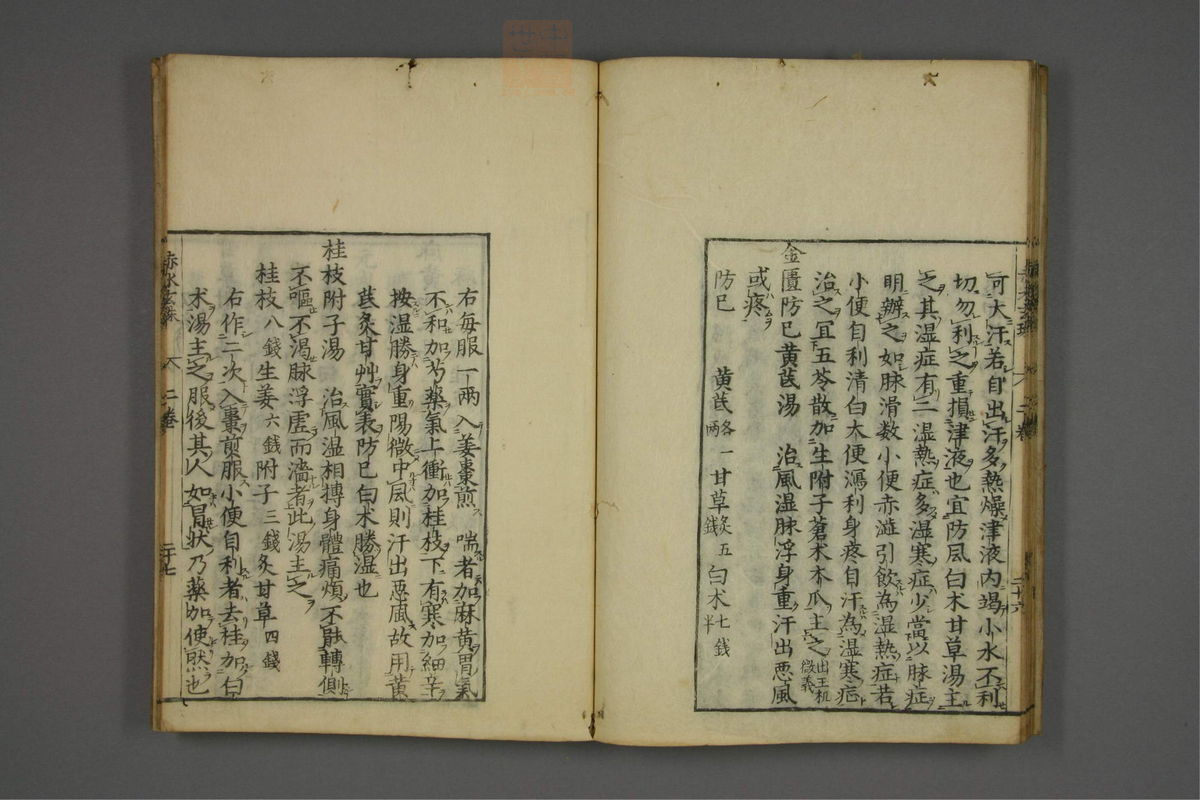 可大汗若自出汗多熱燥津液内竭小水不利
切勿利之重損津液也宜防風白术甘草湯主
之其湿症有二湿熱症多湿寒症少當以脉症
明辨之如脉滑数小便赤澁引飲為湿熱症若
小便自利清白大便瀉利身疼自汗為湿寒症
治之宜五苓散加生附子蒼术木瓜主之出王机微義
金匱防巳黄芪湯　治風湿脉浮身重汗出悪風
或疼
防巳　黄芪各一兩　甘草炙五錢　白术七錢半
右每服一兩入姜棗煎　喘者加麻黄胃氣
不和加芍藥氣上衝加桂枝下有寒加細辛
按湿勝身重陽微中風則汗出悪風故用黄
芪炙甘艸實表防巳白术勝湿也
桂枝附子湯　治風温相摶身體痛煩不能轉側
不嘔不渴脉浮虚而濇者此湯主之
桂枝八錢生姜六錢附子三錢炙甘草四錢
右作二次入棗煎服小便自利者去桂加白
术湯主之服後其人如冒状乃藥加使然也
赤水玄珠　二卷　二十七
二卷　二十六